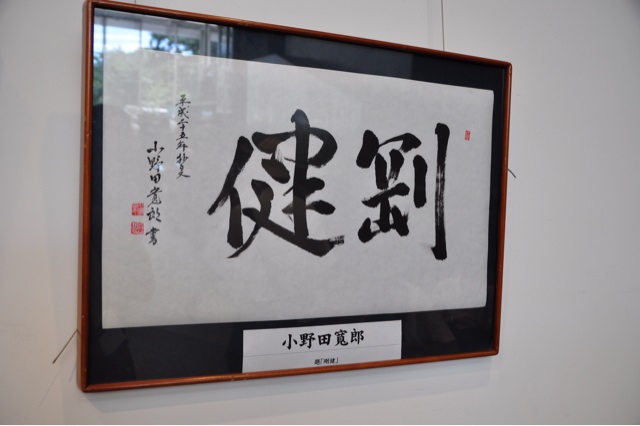 剛健
平成二十五年抄夏
小野田寛郎書
小野田寛郎
題「剛健」